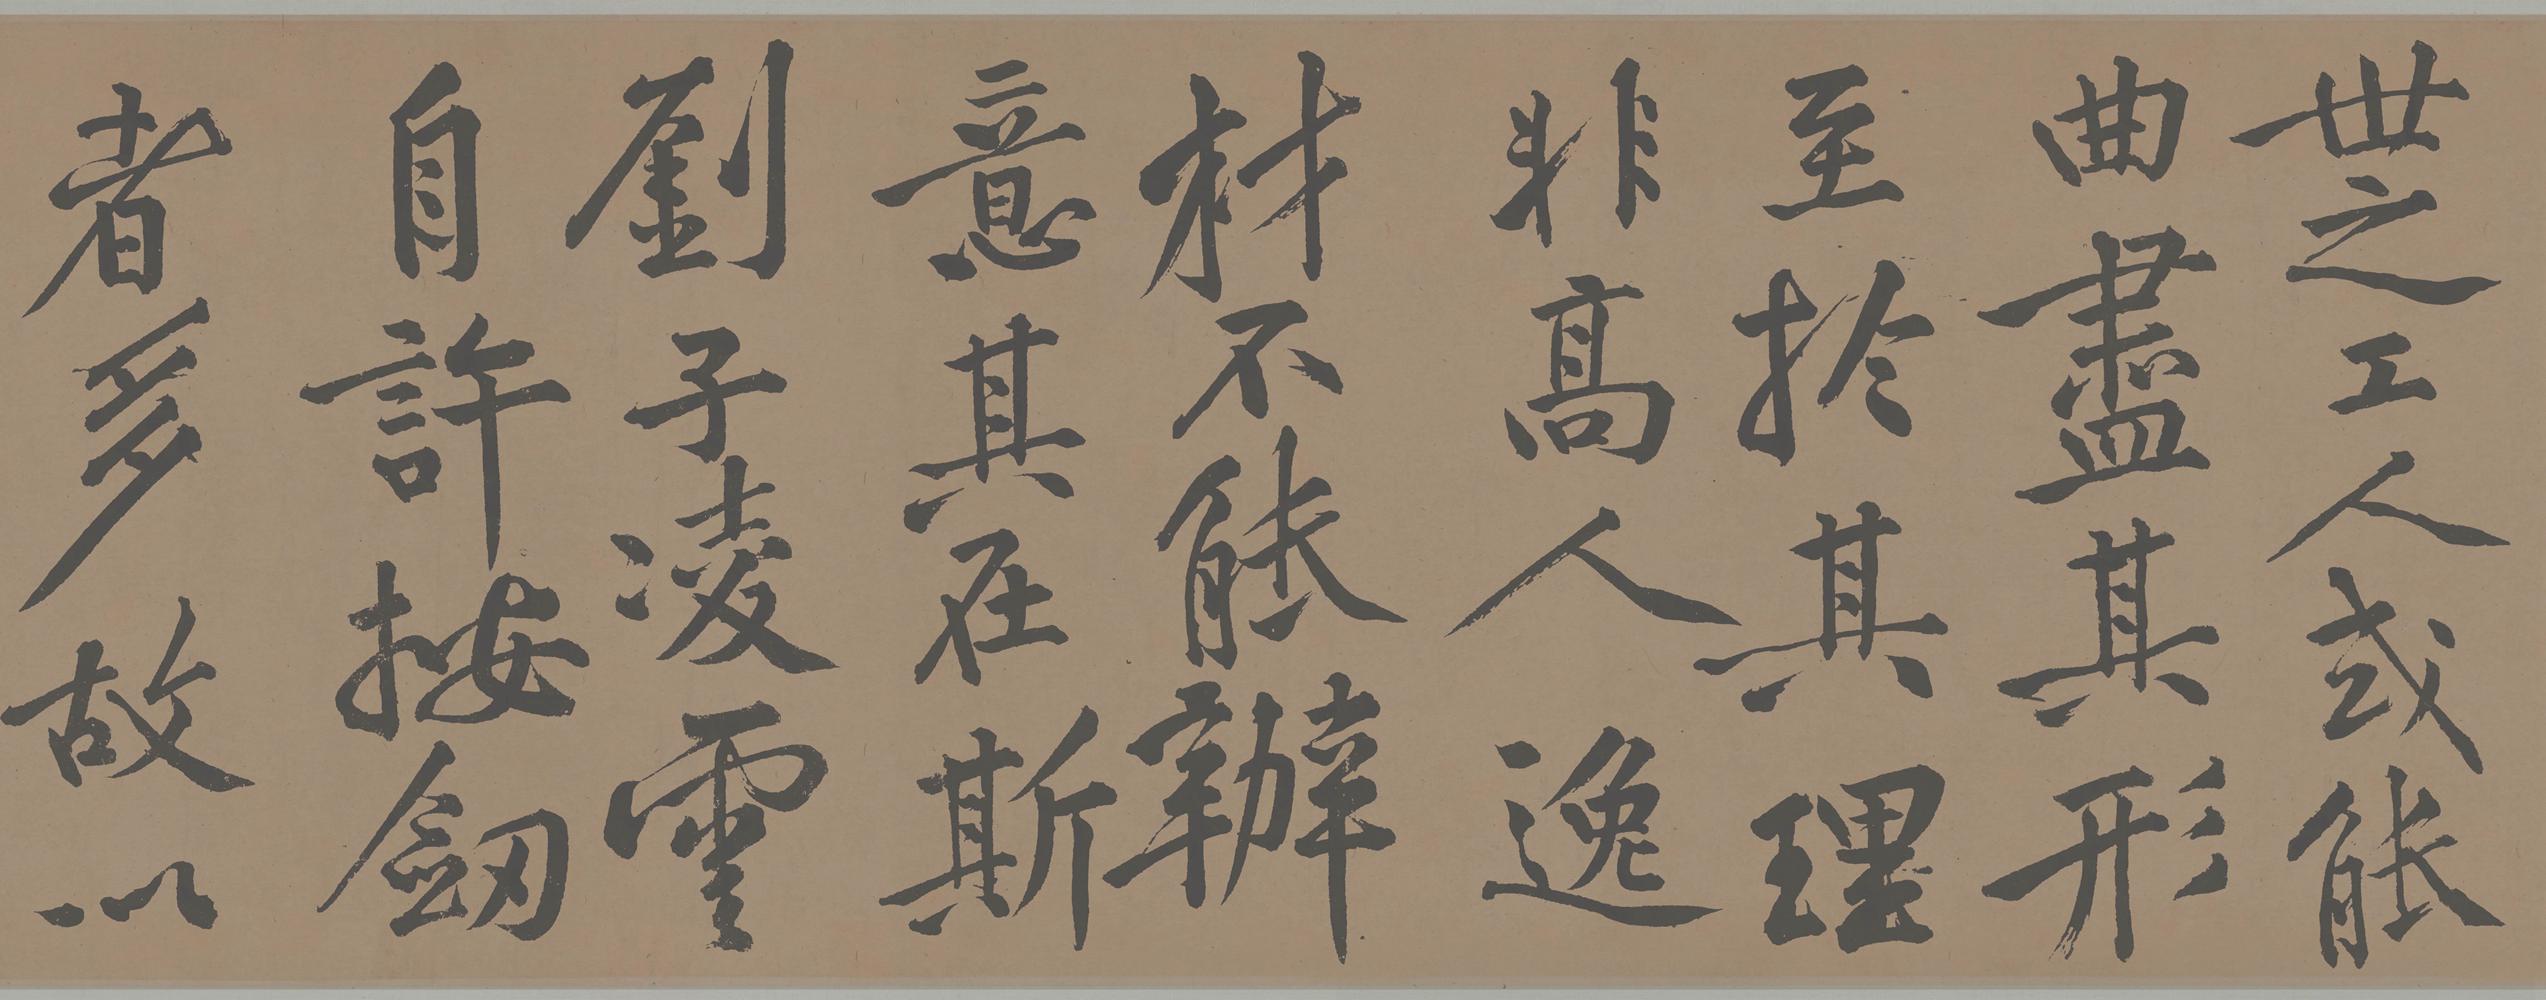 世之工人或能
曲盡其形
至於其理
非高人逸
材不能辦
意其在斯
劉子凌雲
自許按劔
者多故以